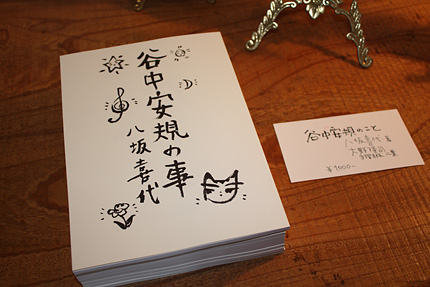 谷中安規の事
八坂喜代
谷中安規のこと
八坂喜代・著
¥1000-